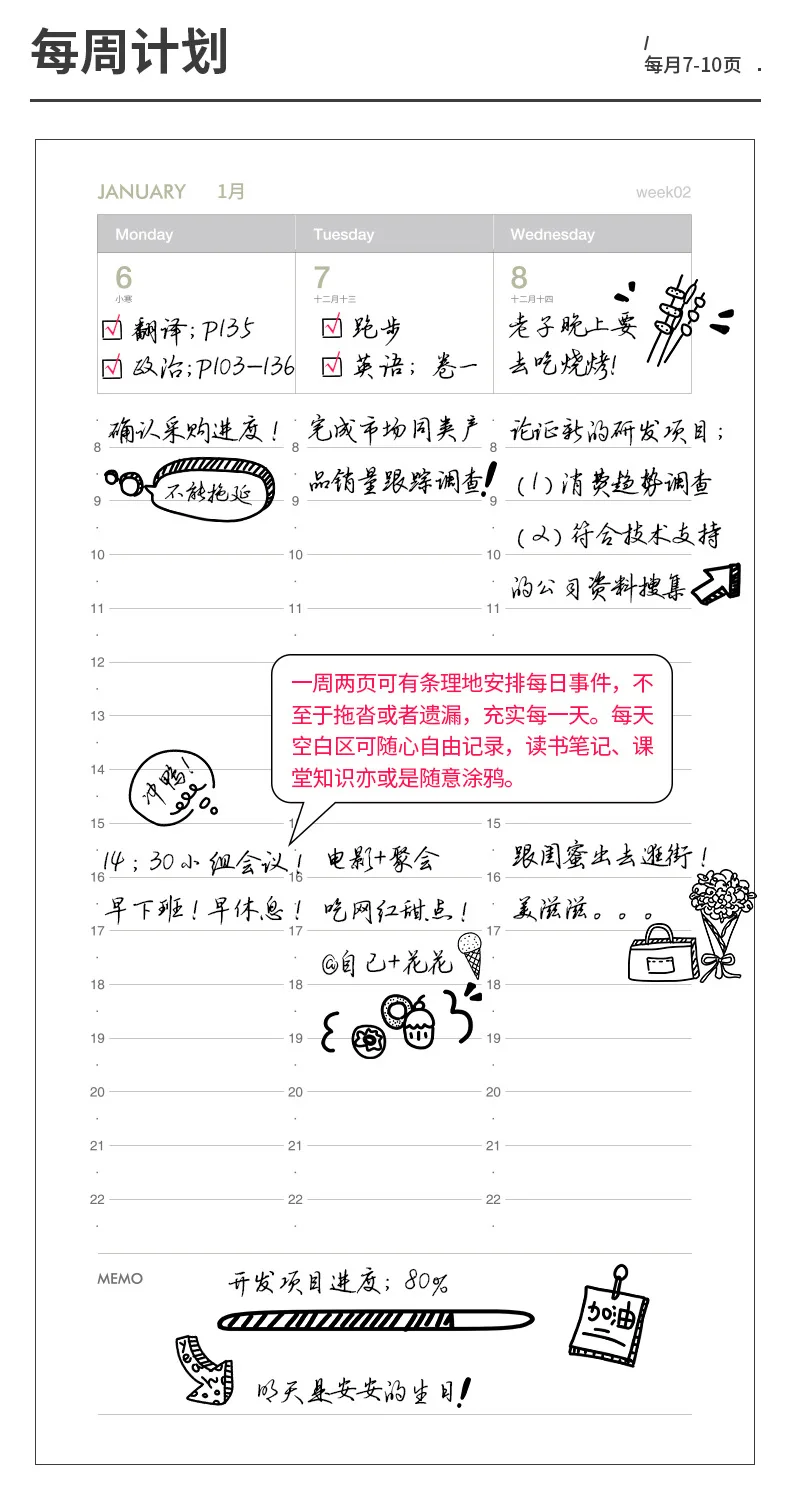 每周计划
/
每月7-10页 .
JANUARY 1月
week02
Monday Tuesday Wednesday
6 7 8
小寒 十二月十三 十二月十四
翻译;P135
政治;P103—136
跑步
英语;卷一
老子晚上要
去吃烧烤!
8
9
10
11
12
13
14
15
16
17
18
19
20
21
22
确认采购进度!
不能拖延
冲鸭!
14;30小组会议!
早下班!早休息!
8
9
10
11
1
16
17
18
19
20
21
22
完成市场同类产
品销量跟踪调查!
一周两页可有条理地安排每日事件，不
至于拖沓或者遗漏，充实每一天。每天
空白区可随心自由记录，读书笔记、课
堂知识亦或是随意涂鸦。
电影+聚会
吃网红甜点!
@自己+花花
8
9
10
11
15
16
17
18
19
20
21
22
论证新的研发项目;
(1)消费趋势调查
(2)符合技术支持
的公司资料搜集
跟闺蜜出去逛街!
美滋滋。。。
MEMO
开发项目进度;80%
加油
Yeo
明天是安安的生日!